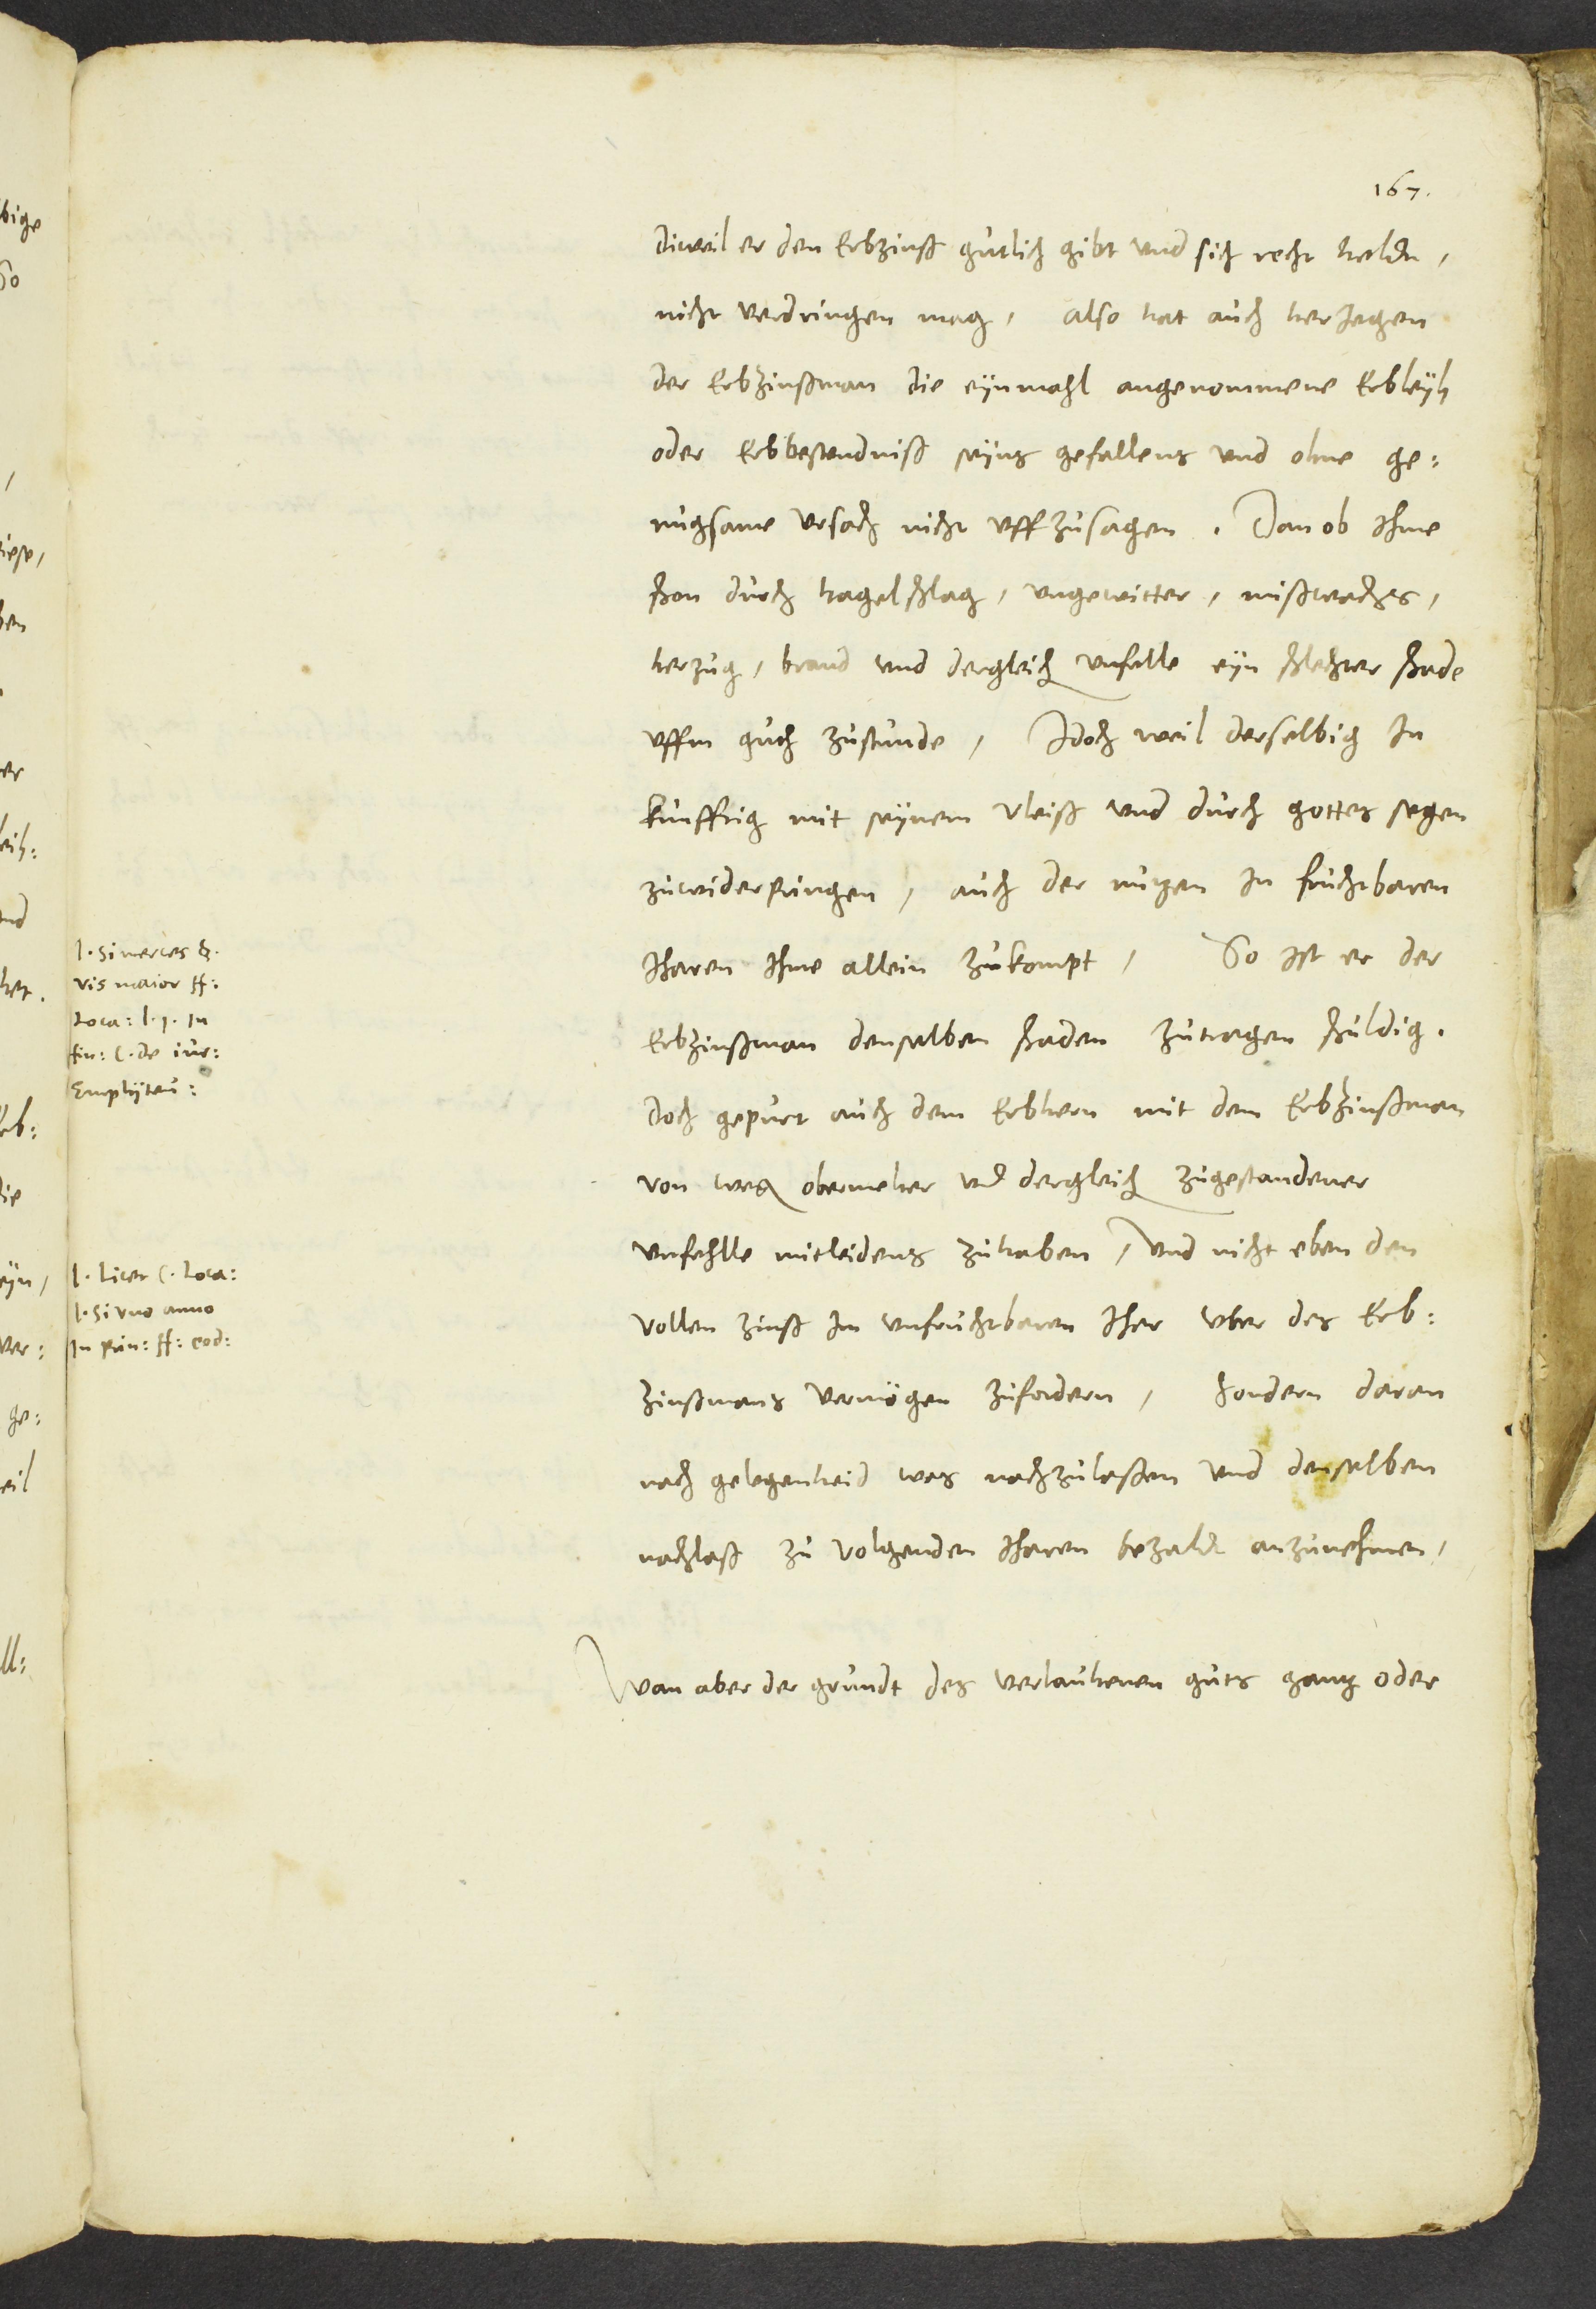 167.
diweil er den Erbzinß gutlich gibt vnd sich recht heldt,
nicht verdringen mag, also hat auch herJegen
der Erbzinßman die eynmahl angenommene Erbleyh
oder Erbbestendniß seyns gefallens vnd ohne ge:
nugsame vrsach nicht vffzusagen. Dan ob Ihme
schon durch hagelschlag, vngewitter, mißwachs,
herzug, brand vnd dergleich vnfelle eyn schlechter schade
vffm guth zustunde, Idoch weil derselbig In
kunfftig mit seynem vleiß vnd durch gottes segen
zuwiderpringen, auch der nutzen In fruchtbaren
Iharen Ihme allein zukompt, So Ist er der
Erbzinßman denselben schaden zutragen schuldig.
Doch gepurt auch dem Erbhern mit dem Erbzinßman
von weg obermelter vnd dergleich zugestandener
vnfehlle mitleidens zuhaben, vnd nicht eben den
vollen zinß Im vnfruchtbaren Ihar vber des Erb:
zinßmans vermögen zufordern, Sondern daran
nach gelegenheid was nachzulaßen vnd denselben
nachlaß zu volgenden Iharen bezaldt anzunehmen,
Wan aber der grundt des verlauhenen guts gantz oder
l. Si merces §.
vis maior ff:
Loca: l. 1. In
fin: C. de iur:
Emphyteu:
l. Licet C. Loca:
l. Si vno anno
In prin: ff: eod:
bige
So
iese,
ben
er
eih:
nd
het.
Erb:
die
eyn,
ver:
ge:
eil
ll: